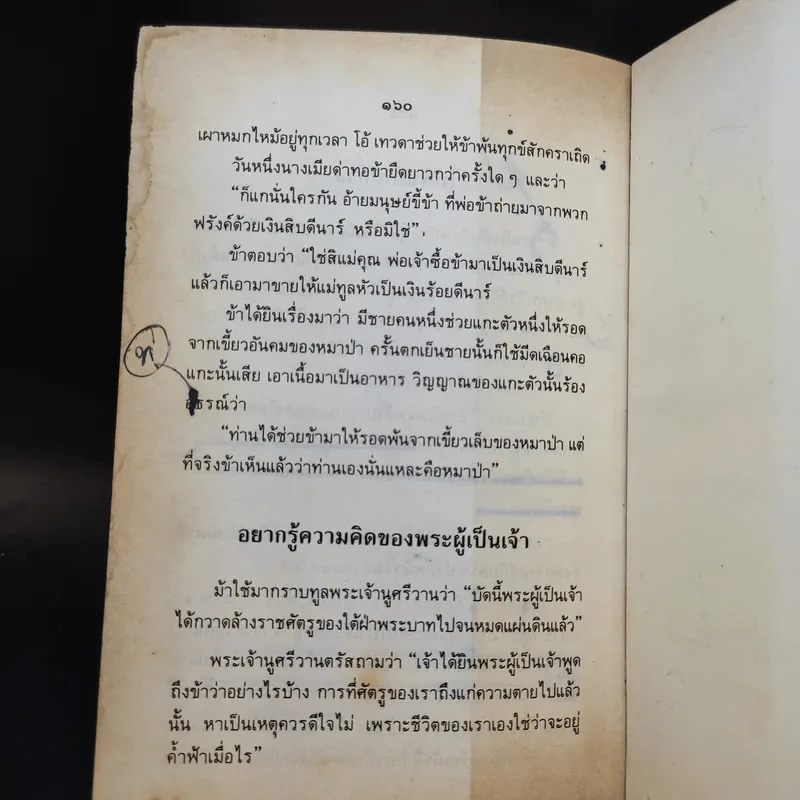 ๑๖๐
เผาหมกไหม้อยู่ทุกเวลา โอ้ เทวดาช่วยให้ข้าพ้นทุกข์สักคราเถิด
วันหนึ่งนางเมียด่าทอข้ายืดยาวกว่าครั้งใด ๆ และว่า
“ก็แกนั่นใครกัน อ้ายมนุษย์ขี้ข้า ที่พ่อข้าถ่ายมาจากพวก
ฟรังค์ด้วยเงินสิบดีนาร์ หรือมิใช่”.
ข้าตอบว่า “ใช่สิแม่คุณ พ่อเจ้าซื้อข้ามาเป็นเงินสิบดีนาร์
แล้วก็เอามาขายให้แม่ทูลหัวเป็นเงินร้อยดีนาร์
ข้าได้ยินเรื่องมาว่า มีชายคนหนึ่งช่วยแกะตัวหนึ่งให้รอด
จากเขี้ยวอันคมของหมาป่า ครั้นตกเย็นชายนั้นก็ใช้มีดเฉือนคอ
แกะนั้นเสีย เอาเนื้อมาเป็นอาหาร วิญญาณของแกะตัวนั้นร้อง
“ท่านได้ช่วยข้ามาให้รอดพ้นจากเขี้ยวเล็บของหมาป่า แต่
ที่จริงข้าเห็นแล้วว่าท่านเองนั่นแหละคือหมาป่า”
อยากรู้ความคิดของพระผู้เป็นเจ้า
ม้าใช้มากราบทูลพระเจ้านูศรีวานว่า “บัดนี้พระผู้เป็นเจ้า
ได้กวาดล้างราชศัตรูของใต้ฝ่าพระบาทไปจนหมดแผ่นดินแล้ว”
พระเจ้านูศรีวานตรัสถามว่า “เจ้าได้ยินพระผู้เป็นเจ้าพูด
ถึงข้าว่าอย่างไรบ้าง การที่ศัตรูของเราถึงแก่ความตายไปแล้ว
นั้น หาเป็นเหตุควรดีใจไม่ เพราะชีวิตของเราเองใช่ว่าจะอยู่
ค้ำฟ้าเมื่อไร”